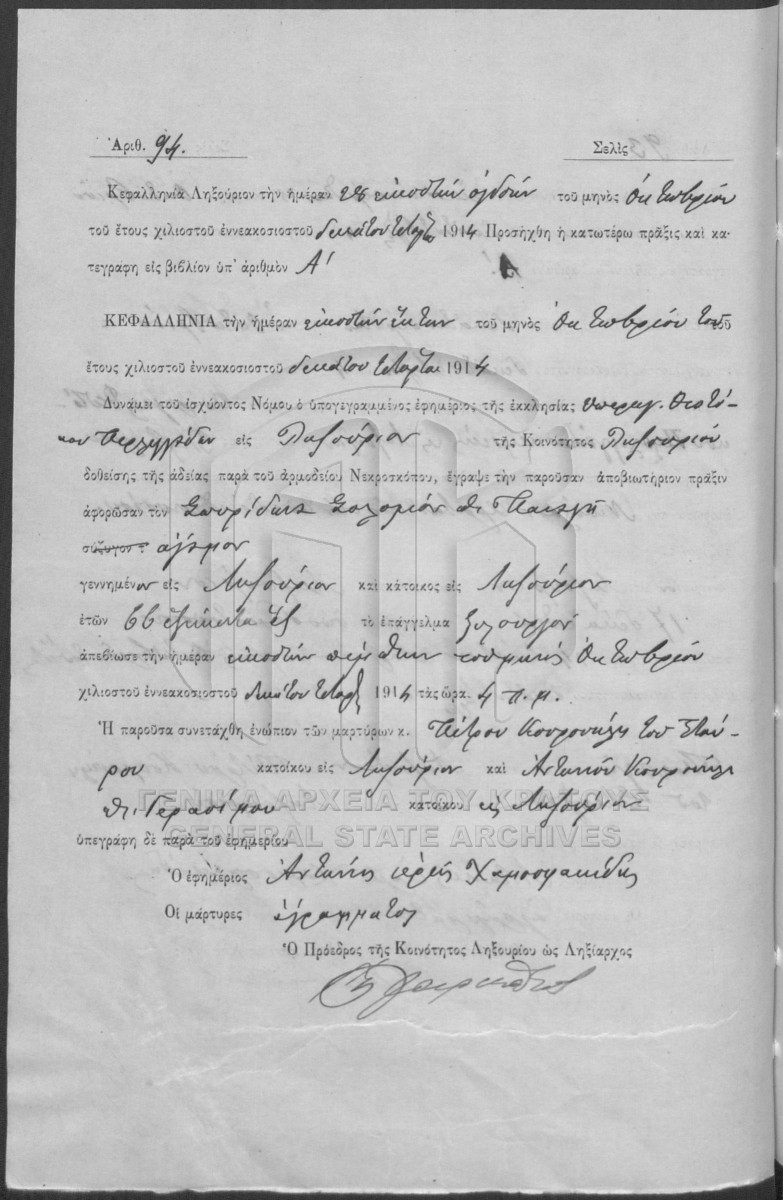 Ἀριθ. 94. Σελὶς
Κεφαλληνία Ληξούριον τὴν ἡμέραν 28 εἰκοστὴν ὀγδόην τοῦ μηνὸς Ὀκτωβρίου
τοῦ ἔτους χιλιοστοῦ ἐννεακοσιοστοῦ δεκάτου τετάρτου 1914 Προσήχθη ἡ κατωτέρω πρᾶξις καὶ κα-
τεγράφη εἰς βιβλίον ὑπ' ἀριθμὸν Α'
ΚΕΦΑΛΛΗΝΙΑ τὴν ἡμέραν εἰκοστὴν ἕκτην τοῦ μηνὸς Ὀκτωβρίου τοῦ
ἔτους χιλιοστοῦ ἐννεακοσιοστοῦ δεκάτου τετάρτου 1914
Δυνάμει τοῦ ἰσχύοντος Νόμου ὁ ὑπογεγραμμένος ἐφημέριος τῆς ἐκκλησίας Ὑπεραγ. Θεοτό-
κου εἰς Ληξούριον τῆς Κοινότητος Ληξουρίου
δοθείσης τῆς ἀδείας παρὰ τοῦ ἁρμοδείου Νεκροσκόπου, ἔγραψε τὴν παροῦσαν ἀποβιωτήριον πρᾶξιν
ἀφορῶσαν τὸν Σπυρίδωνα Σολομὸν Παναγῆ
σύζυγον τ ἄγαμον
γεννημένον εἰς Ληξούριον καὶ κάτοικος εἰς Ληξούριον
ἐτῶν 66 ἑξήκοντα ἓξ τὸ ἐπάγγελμα ξυλουργὸν
ἀπεβίωσε τὴν ἡμέραν εἰκοστὴν πέμπτην τοῦ μηνὸς Ὀκτωβρίου
χιλιοστοῦ ἐννεακοσιοστοῦ δεκάτου τετάρτου 1914 τὰς ὥρα. 4 π. μ.
Ἡ παροῦσα συνετάχθη ἐνώπιον τῶν μαρτύρων κ. Πέτρου Κουρούκλη τοῦ Σταύ-
ρου κατοίκου εἰς Ληξούριον καὶ Ἀντωνίου Κουρούκλη
Γερασίμου κατοίκου εἰς Ληξούριον
ΓΕΝΙΚΑ ΑΡΧΕΙΑ ΤΟΥ ΚΡΑΤΟΥΣ
GENERAL STATE ARCHIVES
ὑπεγράφη δὲ παρὰ τοῦ ἐφημερίου
Ὁ ἐφημέριος Ἀντώνιος ἱερεὺς
Οἱ μάρτυρες ἀγράμματοι
Ὁ Πρόεδρος τῆς Κοινότητος Ληξουρίου ὡς Ληξίαρχος